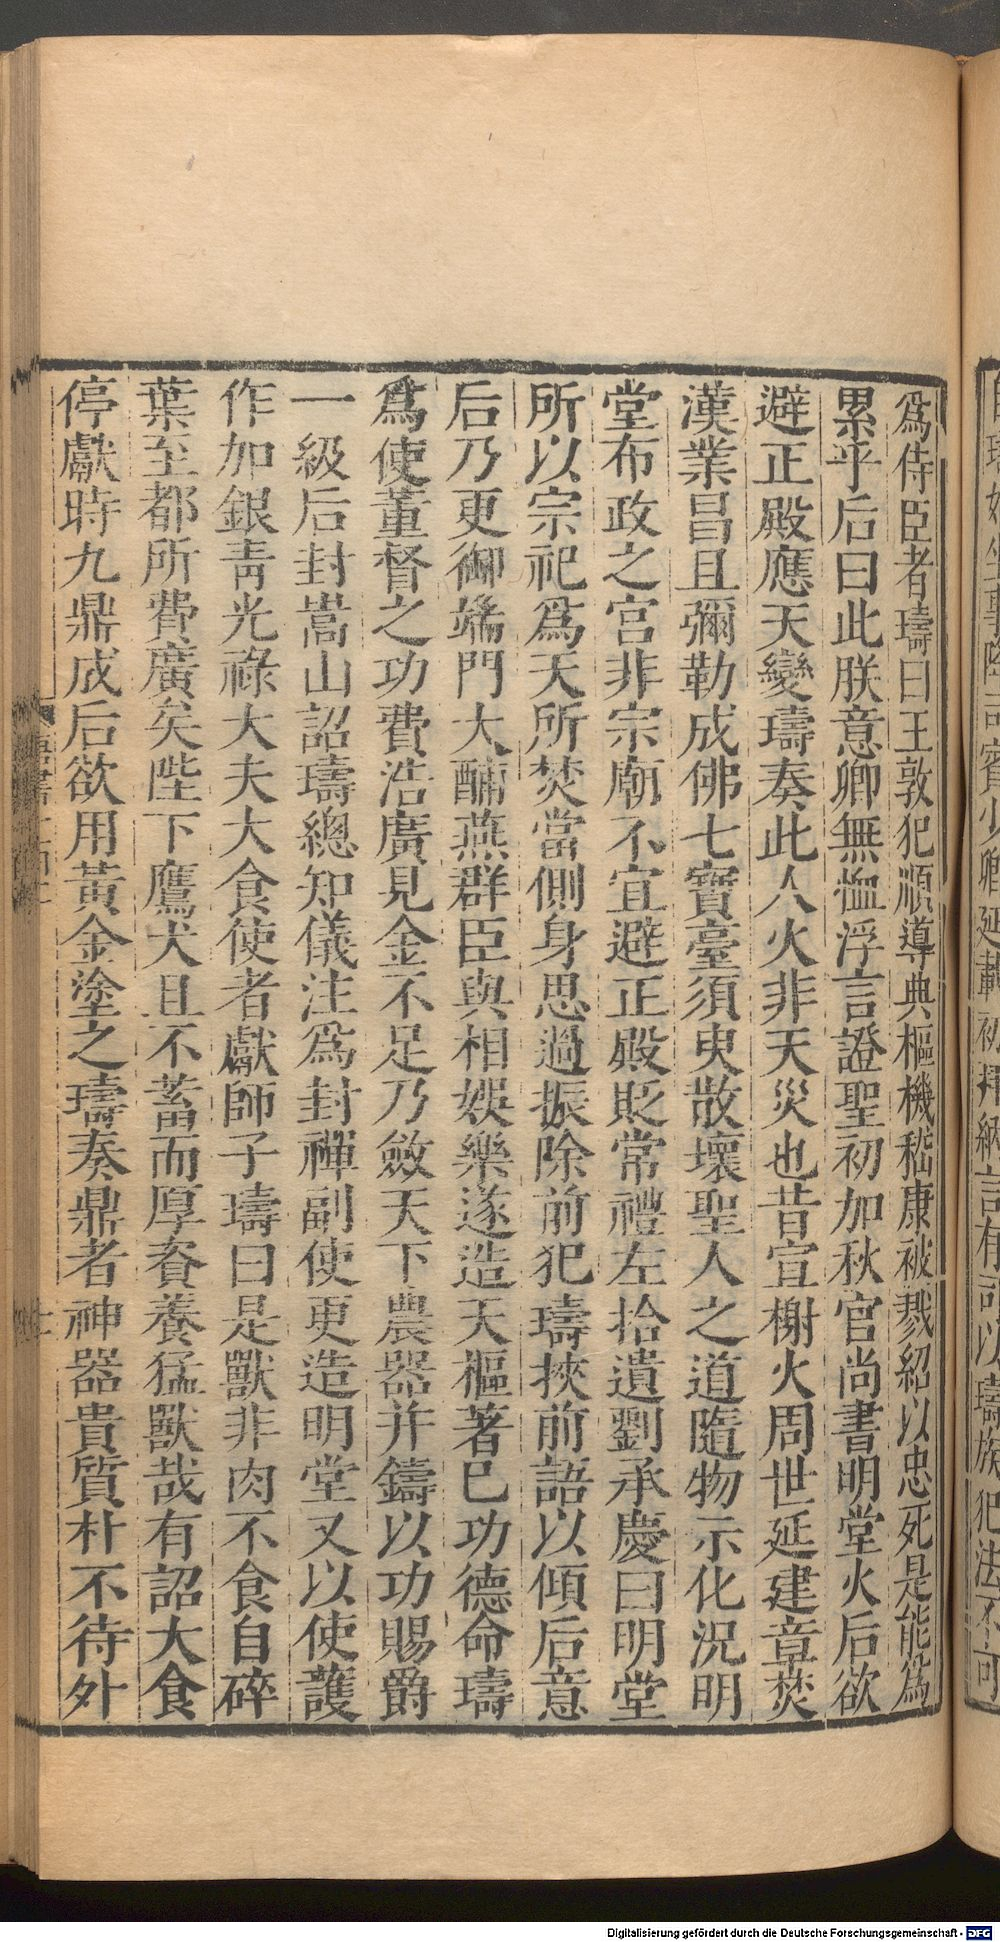 爲侍臣者璹曰王敦犯順導典樞機嵇康被戮紹以忠死是能爲
累乎后曰此朕意卿無恤浮言證聖初加秋官尚書明堂火后欲
避正殿應天變璹奏此人火非天災也昔宣榭火周世延建章焚
漢業昌且彌勒成佛七寶臺須臾散壞聖人之道隨物示化況明
堂布政之宮非宗廟不宜避正殿貶常禮左拾遺劉承慶曰明堂
所以宗祀爲天所焚當側身思過振除前犯璹挾前語以傾后意
后乃更御端門大酺燕群臣與相娛樂遂造天樞著已功德命璹
爲使董督之功費浩廣見金不足乃斂天下農器并鑄以功賜爵
一級后封嵩山詔璹總知儀注爲封禪副使更造明堂又以使護
作加銀青光祿大夫大食使者獻師子璹曰是獸非肉不食自碎
葉至都所費廣矣陛下鷹犬且不蓄而厚資養猛獸哉有詔大食
停獻時九鼎成后欲用黃金塗之璹奏鼎者神器貴質朴不待外
Digitalisierung gefördert durch die Deutsche Forschungsgemeinschaft - DFG